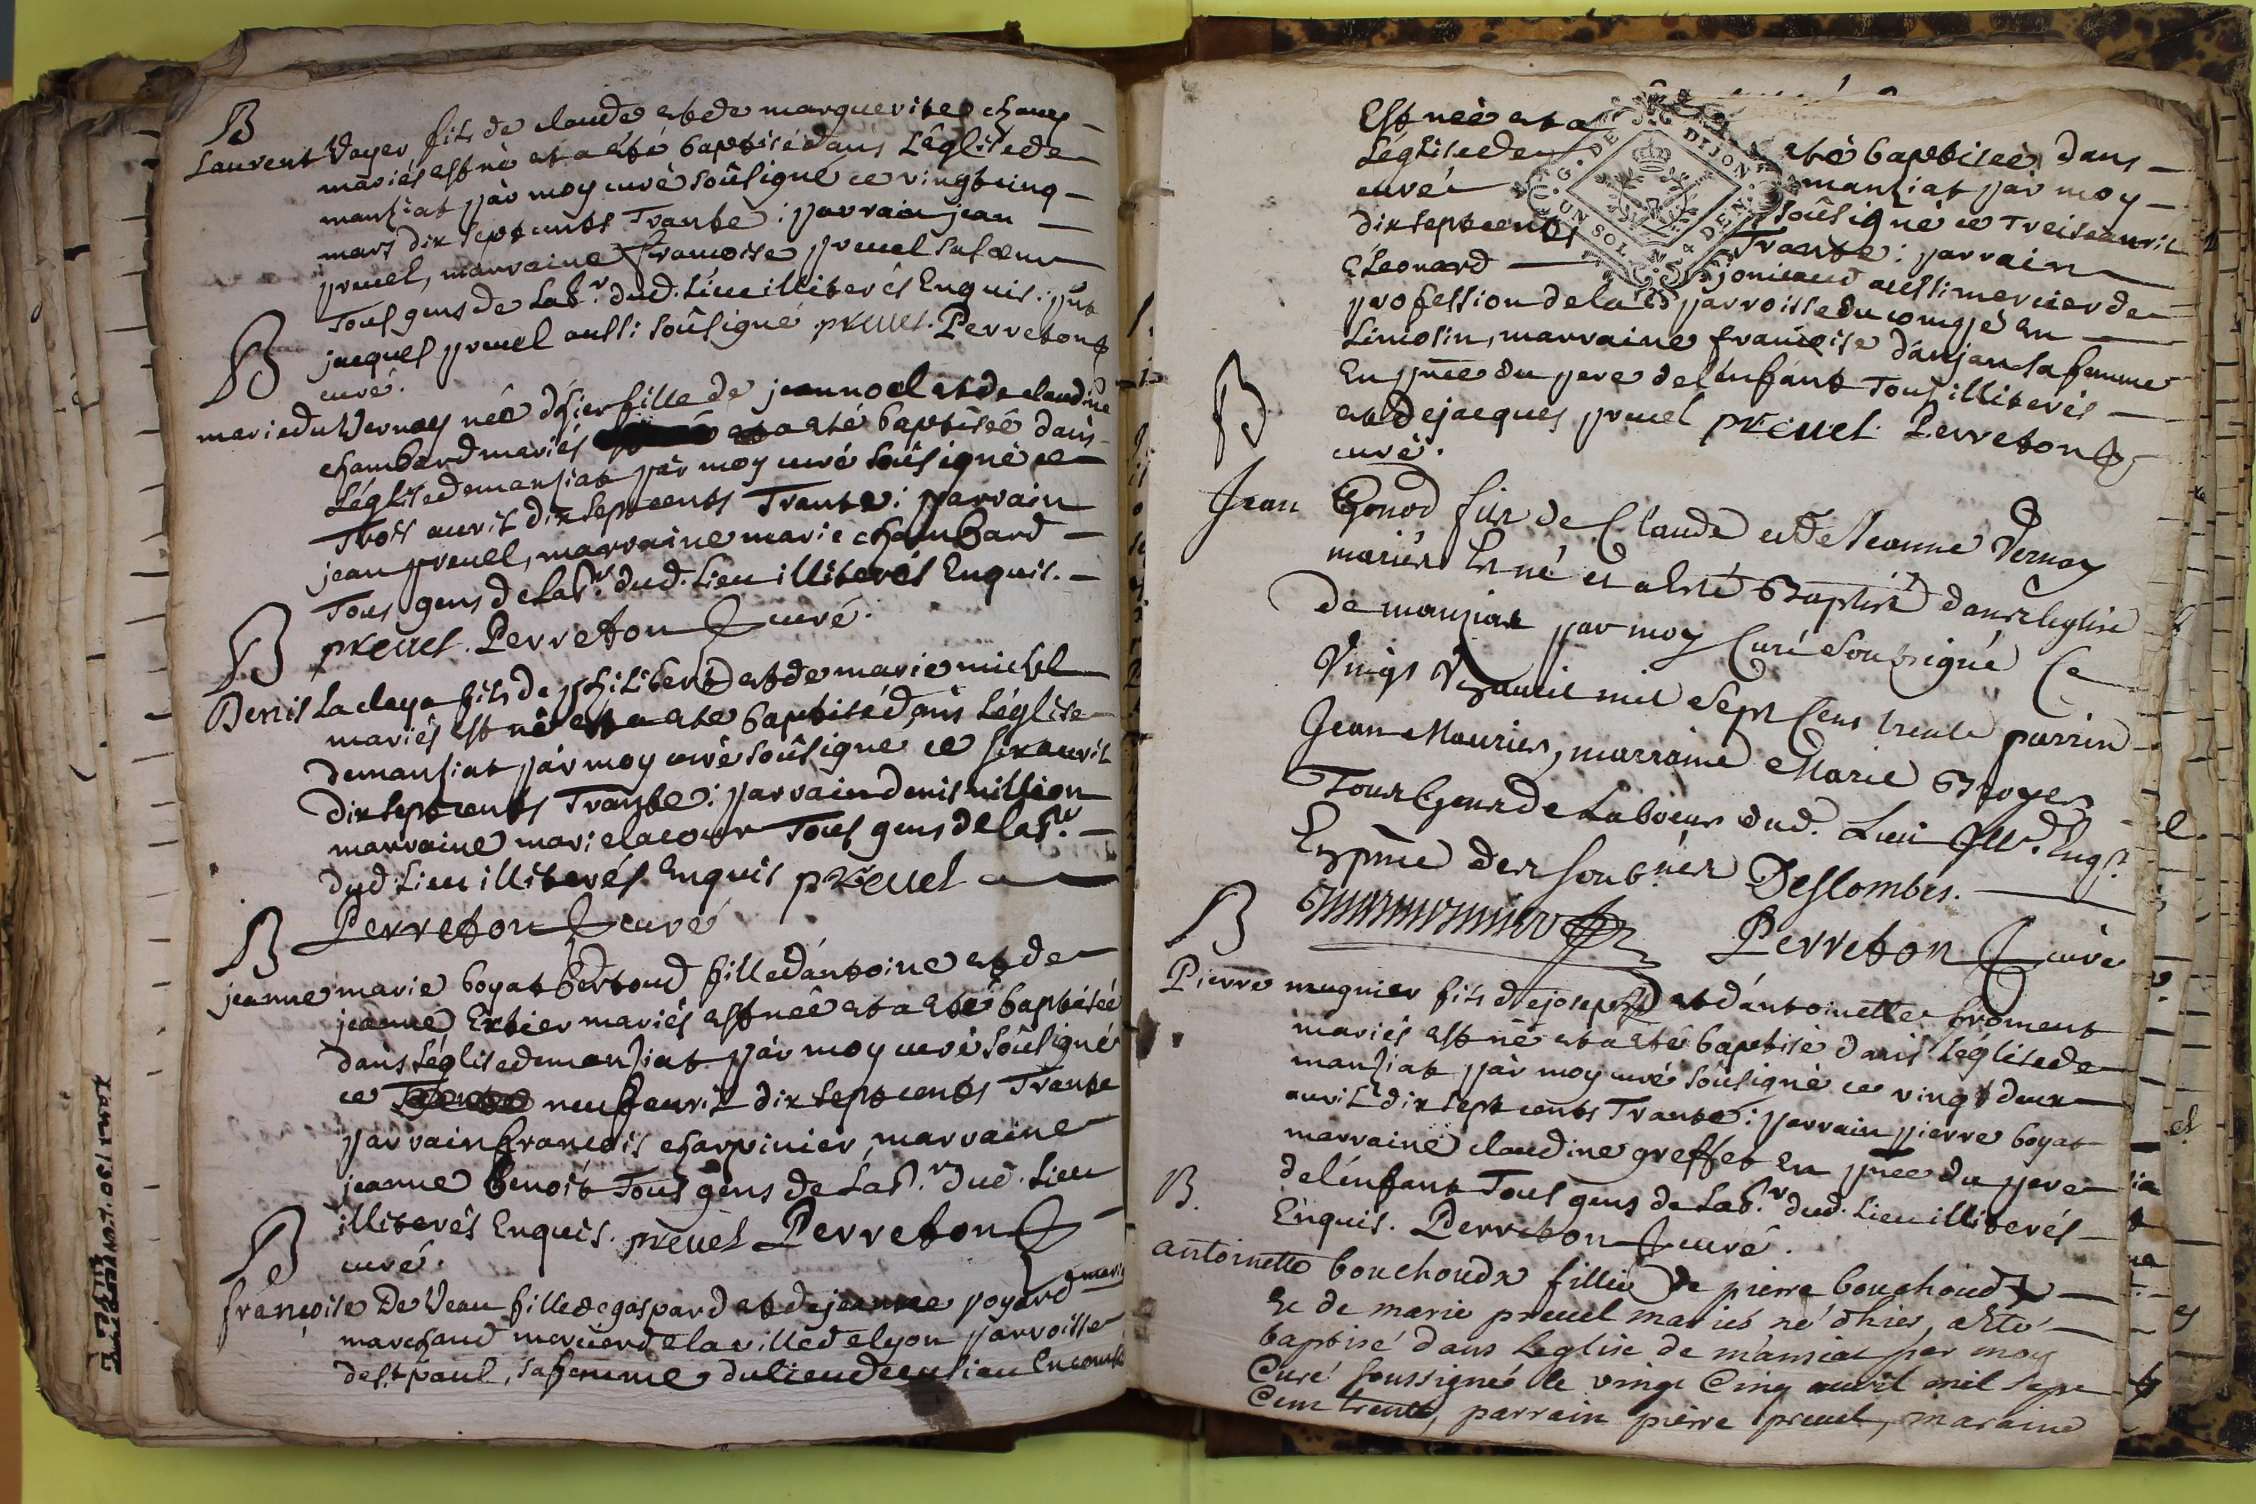 B
Laurent Voyer fils de claude et de marguerite
mariés est né et a été baptisé dans L'église de
mansiat par moy curé soûsigné ce vingt cinq
mars dix sept cents Trante : parrain jean
preuel, marraine francoise preuel sa sœur
Tous gens de Lab.r dud. Lieu illiterés Enquis. pnt
jacques preuel aussi soûsigné. preuel. Perreton
curé.
B
marie du Vernay née d'hier fille de jean noel et de claudine
chambard mariés et a été baptisée dans
L'église de mansiat par moy curé soûsigné ce
Trois auril dix sept cents Trante : parrain
jean preuel, marraine marie chambard
Tous gens de Lab.r dud. Lieu illiterés Enquis.
preuel. Perreton curé.
B
Denis Laclaye fils de philibert et de marie michel
mariés est né et a été baptisé dans L'église
de mansiat par moy curé soûsigné ce six auril
dix sept cents Trante : parrain denis million
marraine marie lacour Tous gens de lab.r
dud. Lieu illiterés Enquis preuel
Perreton curé
B
jeanne marie boyat bertoud fille d'antoine et de
jeanne Extier mariés est née et a été baptisée
dans L'église de mansiat par moy curé soûsigné
ce neuf auril dix sept cents Trante
parrain francois charpinier, marraine
jeanne benoit Tous gens de Lab.r dud. Lieu
illiterés Enquis. preuel Perreton
curé.
B
françoise De Veau fille de gaspard et de jeanne marie poyard
marchand mercier de la ville de lyon parroisse
de st paul, sa femme du lieu de
Est née et a été baptisée dans
L'église de mansiat par moy
curé soûsigné ce Treise auril
dix sept cents Trante : parrain
Leonard aussi mercier de
profession de la d parroisse du en
Limosin, marraine françoise danjan sa femme
En pnce du pere de l'enfant Tous illiterés
et de jacques preuel preuel. Perreton
curé.
B
Jean Gonod fils de Claude et de Jeanne Vernay
mariés Est né et a Esté Baptisé dans leglise
de mansiat par moy Curé Soubsigné Ce
Vingt auril mil Sept Cens trente parrin
Jean Maurier, marraine Marie Broyer
Tous Gens de Labœur dud. Lieu Ill. Enq.
En pnce des soub.nés Deslombes.
Perreton curé
B
Pierre mugnier fils de joseph et d'antoinette froment
mariés est né et a été baptisé dans L'église de
mansiat par moy curé soûsigné ce vingt deux
auril dix sept cents Trante : parrain pierre boyat
marraine claudine greffet En pnce du pere
de l'enfant Tous gens de Lab.r dud. Lieu illiterés
Enquis. Perreton curé.
B.
antoinette bouchoudx fillie de pierre bouchoudx
Et de marie preuel mariés né d'hier, a Eté
baptisé dans Leglise de mansiat par moy
Curé soussigné le vingt Cinq auril mil sept
Cent trente, parrain pierre preuel, maraine
G. DE DIJON
UN SOL 4 DEN.